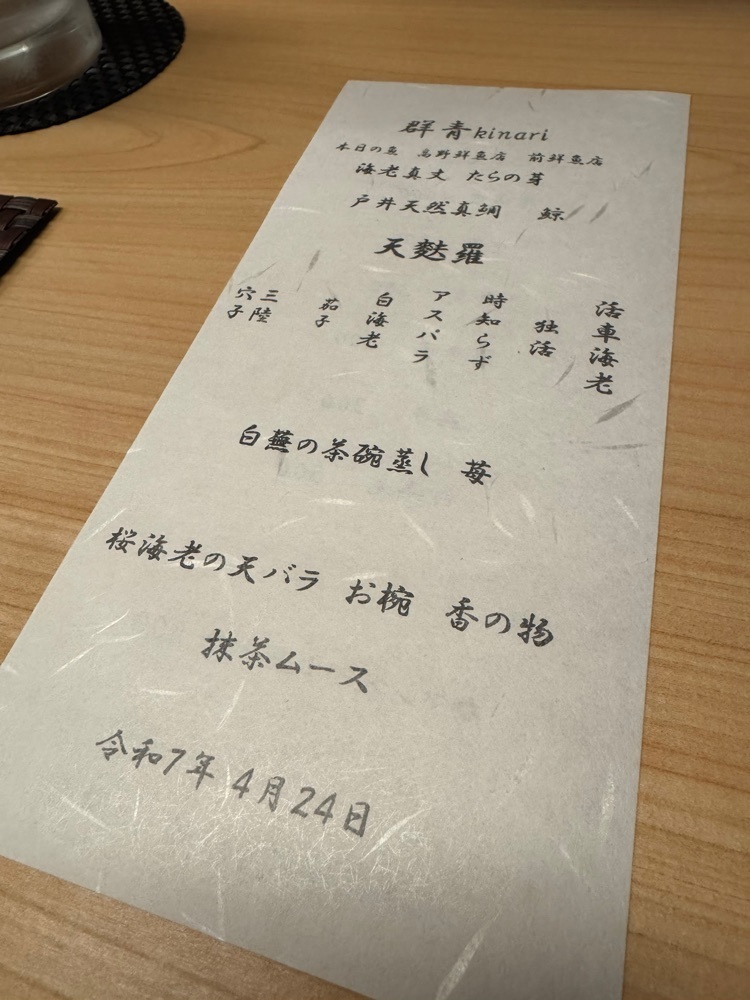 群青kinari
本日の魚 高野鮮魚店 前鮮魚店
海老真丈 たらの芽
戸井天然真鯛 鯨
天麩羅
活車海老
独活
時知らず
アスパラ
白海老
茄子
三陸
穴子
白蕪の茶碗蒸し 苺
桜海老の天バラ お椀 香の物
抹茶ムース
令和7年 4月24日